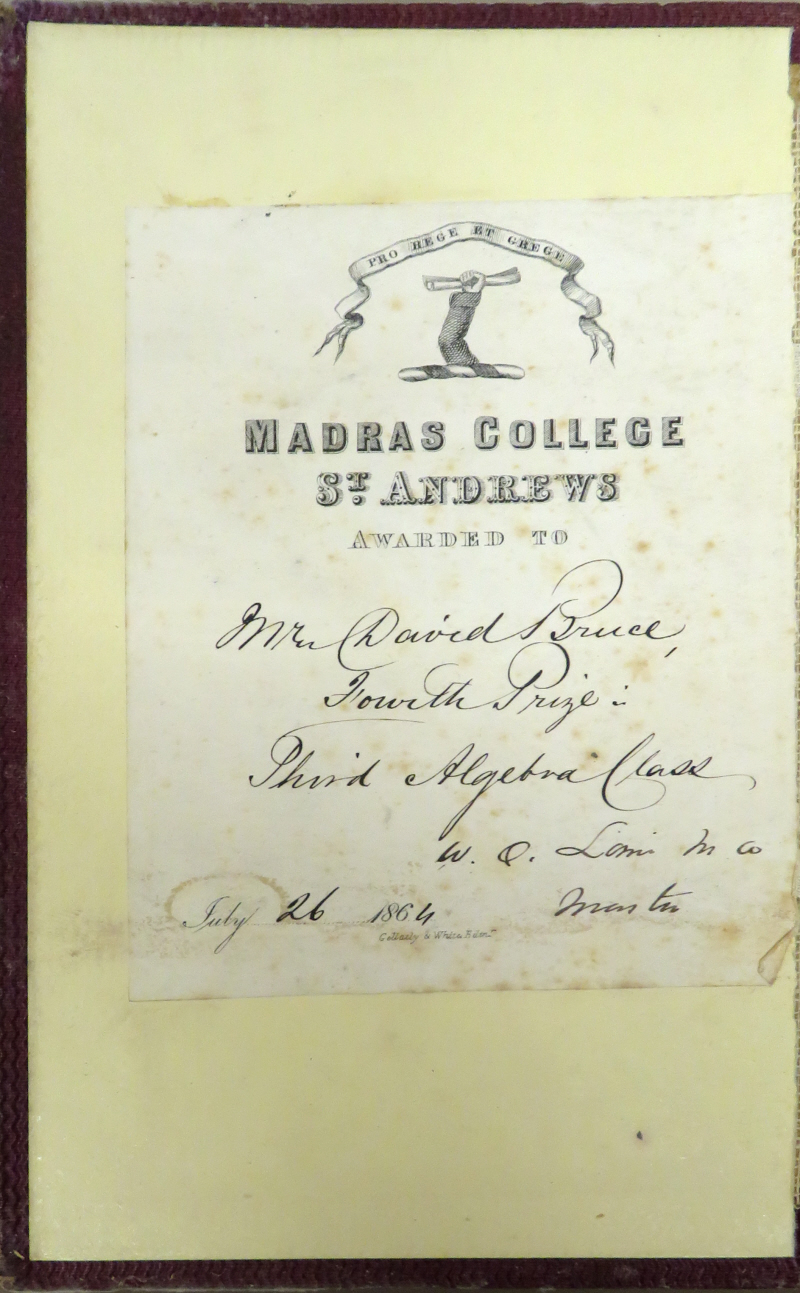 PRO REGE ET GREGE
MADRAS COLLEGE
ST. ANDREWS
AWARDED TO
David Bruce,
Fourth Prize :
Third Algebra Class
W. O.
July 26 1864 Master
& White Edinr.